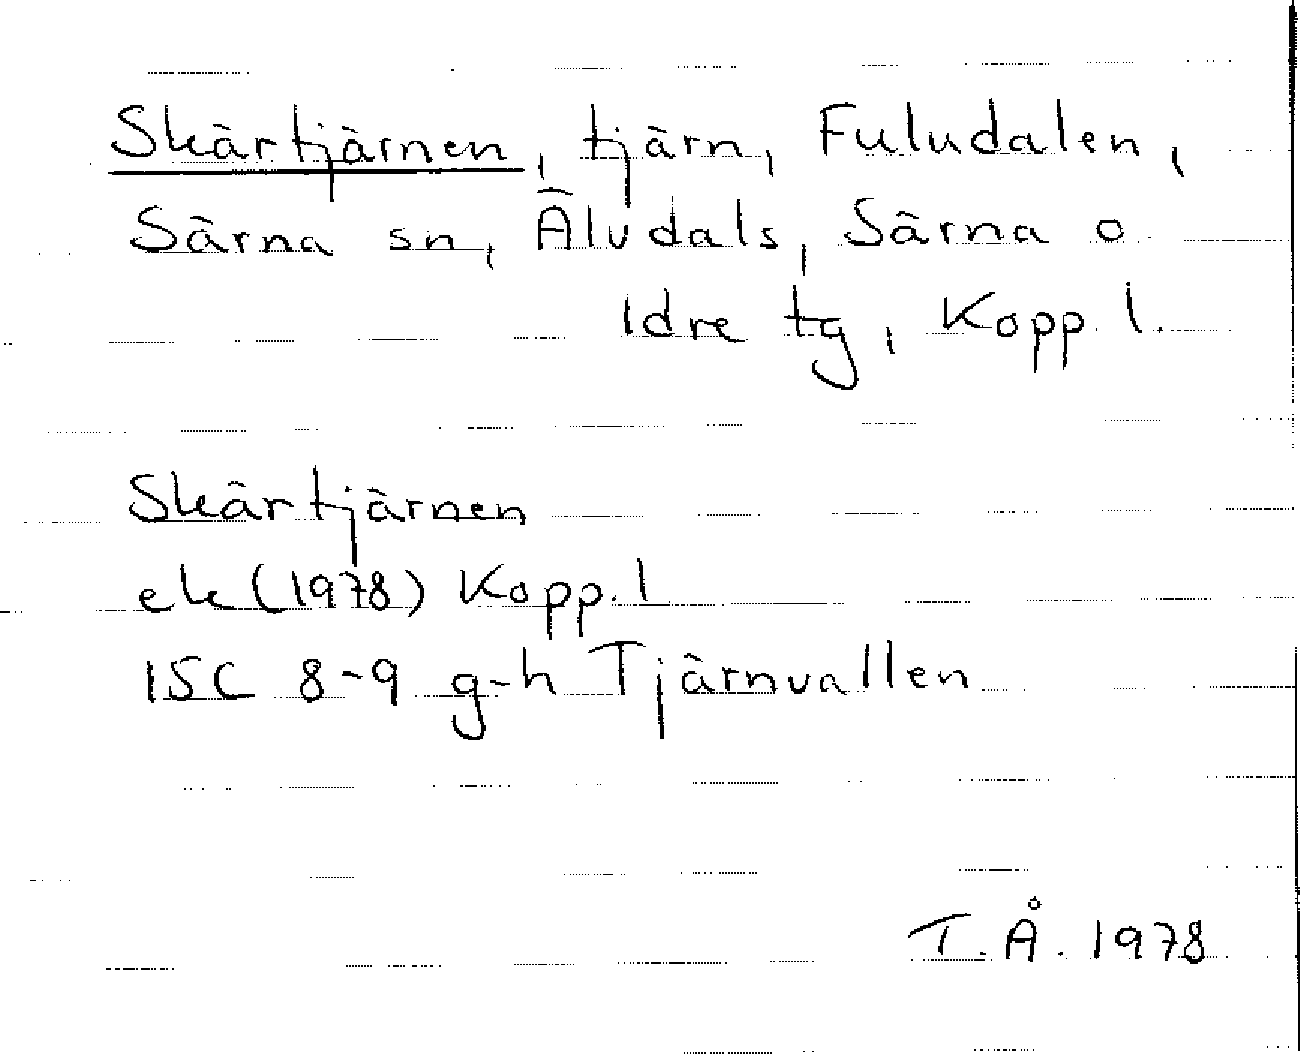 Skärtjärnen, tjärn, Fuludalen,
Särna sn, Älvdals, Särna o
Idre tg, Kopp. l.
Skärtjärnen
ek (1978) Kopp. l
15C 8-9 g-h Tjärnvallen
T.Å. 1978